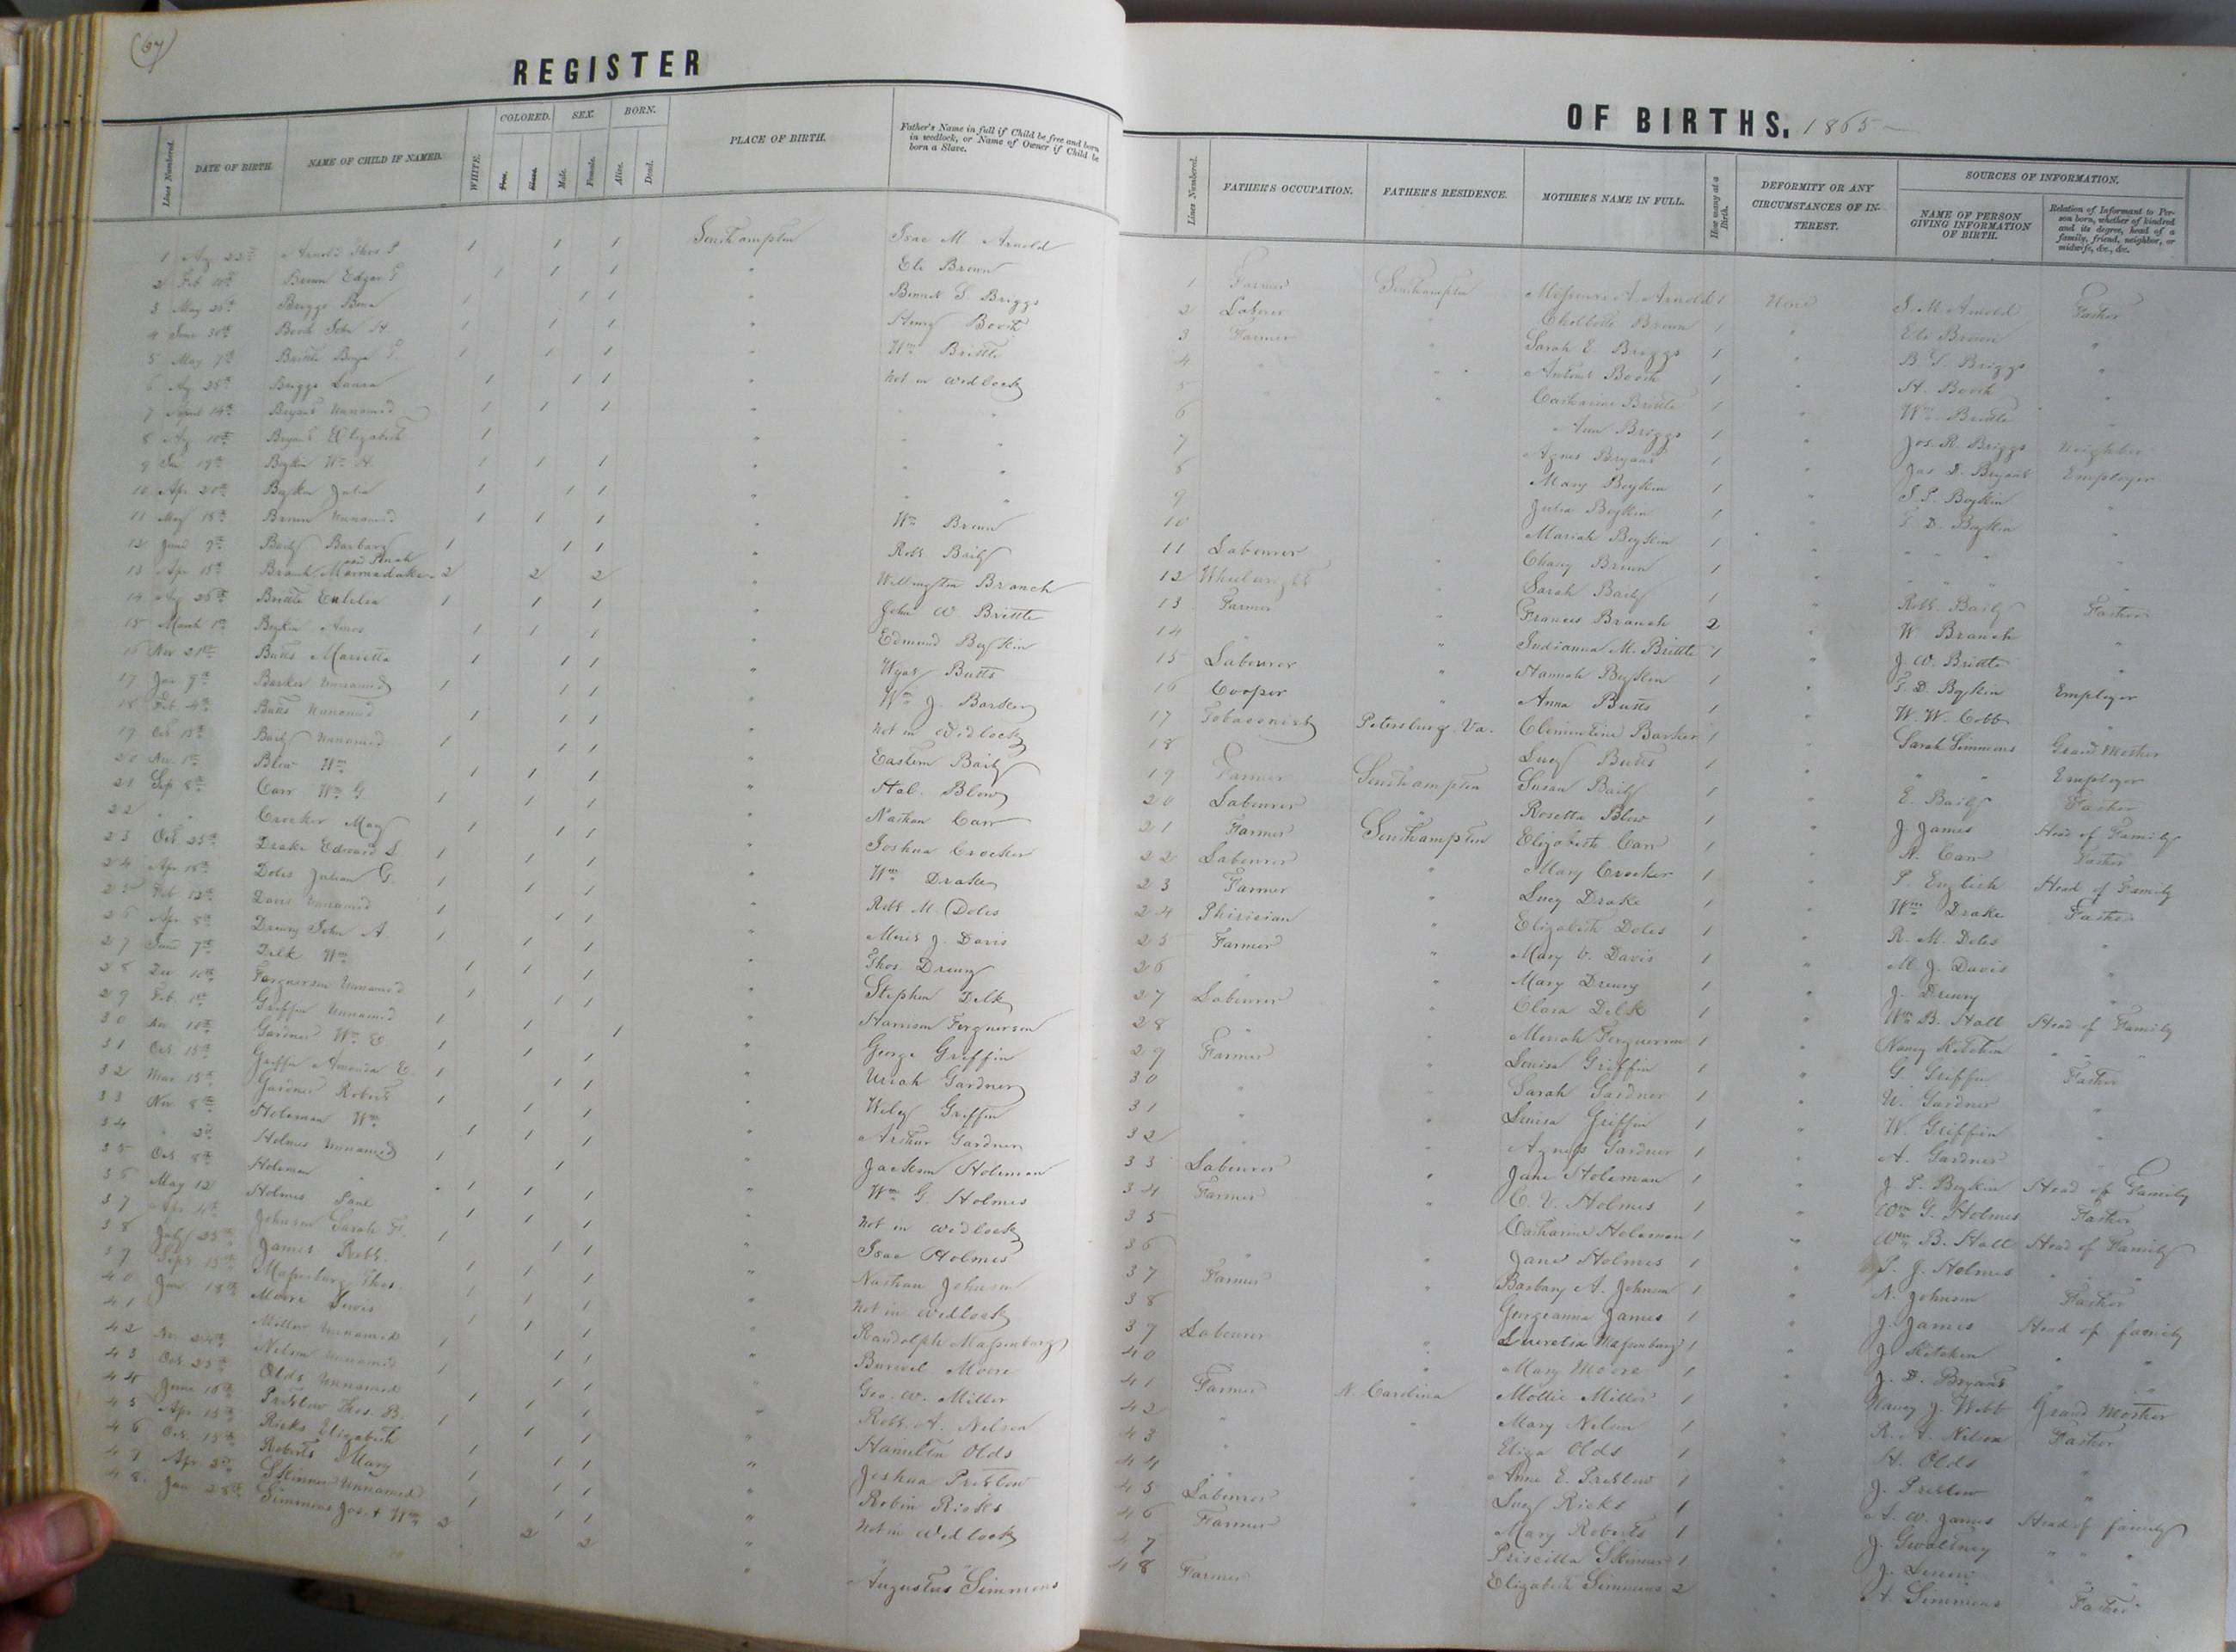 (67)
REGISTER
Lines Numbered.
DATE OF BIRTH.
NAME OF CHILD IF NAMED.
WHITE.
COLORED.
Free.
Slave.
SEX.
Male.
Female.
BORN.
Alive.
Dead.
PLACE OF BIRTH.
Father's Name in full if Child be free and born
in wedlock, or Name of Owner if Child be
born a Slave.
1 Arnold Thos Southampton Isac M Arnold
2 Feb 10th Brown Edgar Eli Brown
3 May 26th Briggs Bennet S. Briggs
4 June 30th Booth John H. Henry Booth
5 May 7th Brittle Wm Brittle
6 Ag 25th Briggs Laura Not in Wedlock
7 April 14th Bryant Unnamed
8 Ag 10th Bryant Elizabeth
9 Boykin Wm H.
10 Apr 20th Boykin Julia
11 May 18th Brown Unnamed Wm Brown
12 June 9th Baily Barbary Robt Baily
13 Apr 15th Branch Marmaduke 2 2 2 Willington Branch
14 Brittle John W. Brittle
15 March 1st Boykin Amos Edmund Boykin
16 Nov 21st Butts Marietta Wyat Butts
17 Jan 9th Barker Unnamed Wm J. Barker
18 Feb. 4th Butts Unnamed Not in Wedlock
19 Oct 13th Baily Unnamed Eastern Baily
20 Nov. 1st Blow Wm Hal. Blow
21 Sep 8th Carr Wm G. Nathan Carr
22 " " Crocker Mary Joshua Crocker
23 Oct 25th Drake Edward S. Wm Drake
24 Apr 18th Doles Julian G. Robt M. Doles
25 Feb 12th Davis Unnamed J. Davis
26 Apr 8th Drewry John A. Thos. Drewry
27 June 7th Delk Wm Stephen Delk
28 Dec 10th Ferguerson Unnamed Harrison Ferguerson
29 Feb. 1st Griffin Unnamed George Griffin
30 Nov 11th Gardner Wm E Uriah Gardner
31 Oct 15th Griffin Amanda E. Wiley Griffin
32 Mar 15th Gardner Robert Arthur Gardner
33 Nov 8th Holeman Wm Jackson Holeman
34 " Holmes Unnamed Wm G. Holmes
35 Oct 8th Holeman " Not in Wedlock
36 May 12 Holmes Paul Isac Holmes
37 Apr 4th Johnson Sarah F. Nathan Johnson
38 July 25th James Robt. Not in Wedlock
39 Sept 15th Massenburg Thos. Randolph Massenburg
40 Jan 18th Moore Lewis Burwel Moore
41 Miller Unnamed Geo. W. Miller
42 Nov 24th Nelson Unnamed Robt. A. Nelson
43 Oct. 25th Olds Unnamed Hamelton Olds
44 June 16th Pretlow Thos. B. Joshua Pretlow
45 Apr 15th Ricks Elizabeth Robin Ricks
46 Oct 15th Roberts Mary Not in Wedlock
47 Apr Skinner Unnamed " "
48 Jan 28th Simmons Jas. + Wm 2 2 2 Augustus Simmons
OF BIRTHS. 1865
Lines Numbered.
FATHER'S OCCUPATION.
FATHER'S RESIDENCE.
MOTHER'S NAME IN FULL.
How many at a Birth.
DEFORMITY OR ANY
CIRCUMSTANCES OF IN-
TEREST.
SOURCES OF INFORMATION.
NAME OF PERSON
GIVING INFORMATION
OF BIRTH.
Relation of Informant to Per-
son born, whether of kindred
and its degree, head of a
family, friend, neighbor, or
midwife, &c., &c.
1 Farmer Southampton Arnold 1 None I. M Arnold Father
2 Laborer Brown 1 Eli Brown "
3 Farmer Sarah E. Briggs 1 B. S. Briggs "
4 " Booth 1 H. Booth "
5 " Catharine Brittle 1 Wm Brittle "
6 Ann Briggs 1 Jos. R. Briggs Neighbor
7 Agnes Bryant 1 Jas D. Bryant Employer
8 Mary Boykin 1 Boykin "
9 Julia Boykin 1 D. Boykin "
10 Mariah Boykin 1 " "
11 Labourer Chacy Brown 1 " "
12 Wheelwright Sarah Baily 1 Robt. Baily Father
13 Farmer Frances Branch 2 W. Branch "
14 " Indianna M. Brittle 1 J. W. Brittle "
15 Labourer Hannah Boykin 1 D. Boykin Employer
16 Cooper Anna Butts 1 W. W. Cobb "
17 Tobaconist Petersburg. Va. Clementine Barker 1 Sarah Simmons Grand Mother
18 Lucy Butts 1 " " Employer
19 Farmer Southampton Susan Baily 1 E. Baily Father
20 Labourer " Rosetta Blow 1 J. James Head of Family
21 Farmer Southampton Elizabeth Carr 1 N. Carr Father
22 Labourer " Mary Crocker 1 P. English Head of Family
23 Farmer Lucy Drake 1 Wm Drake Father
24 Phisician Elizabeth Doles 1 R. M. Doles "
25 Farmer Mary V. Davis 1 M. J. Davis "
26 " Mary Drewry 1 J. Drewry "
27 Labourer Clara Delk 1 Wm B. Hall Head of Family
28 " Moriah Ferguerson 1 Nancy Kitchen " " "
29 Farmer Louisa Griffin 1 G. Griffin Father
30 " Sarah Gardner 1 U. Gardner "
31 " Louisa Griffin 1 W. Griffin "
32 " Agness Gardner 1 A. Gardner "
33 Labourer Jane Holeman 1 J. P. Boykin Head of Family
34 Farmer C. V. Holmes 1 Wm G. Holmes Father
35 Catharine Holeman 1 Wm B. Hall Head of Family
36 " Jane Holmes 1 P. J. Holmes " " "
37 Farmer Barbary A. Johnson 1 N. Johnson Father
38 Georgeanna James 1 J. James Head of family
39 Labourer Lucretia Massenburg 1 J. Kitchen " "
40 " Mary Moore 1 J. D. Bryant " "
41 Farmer N. Carolina Mollie Miller 1 Nancy J. Webb Grand Mother
42 " " Mary Nelson 1 R. A. Nelson Father
43 " Eliza Olds 1 H. Olds "
44 " Anne E. Pretlow 1 J. Pretlow "
45 Labourer Lucy Ricks 1 A. W. James Head of family
46 Farmer Mary Roberts 1 J. Gwaltney " " "
47 Priscilla Skinner 1 J. " " "
48 Farmer Elizabeth Simmons 2 A. Simmons Father